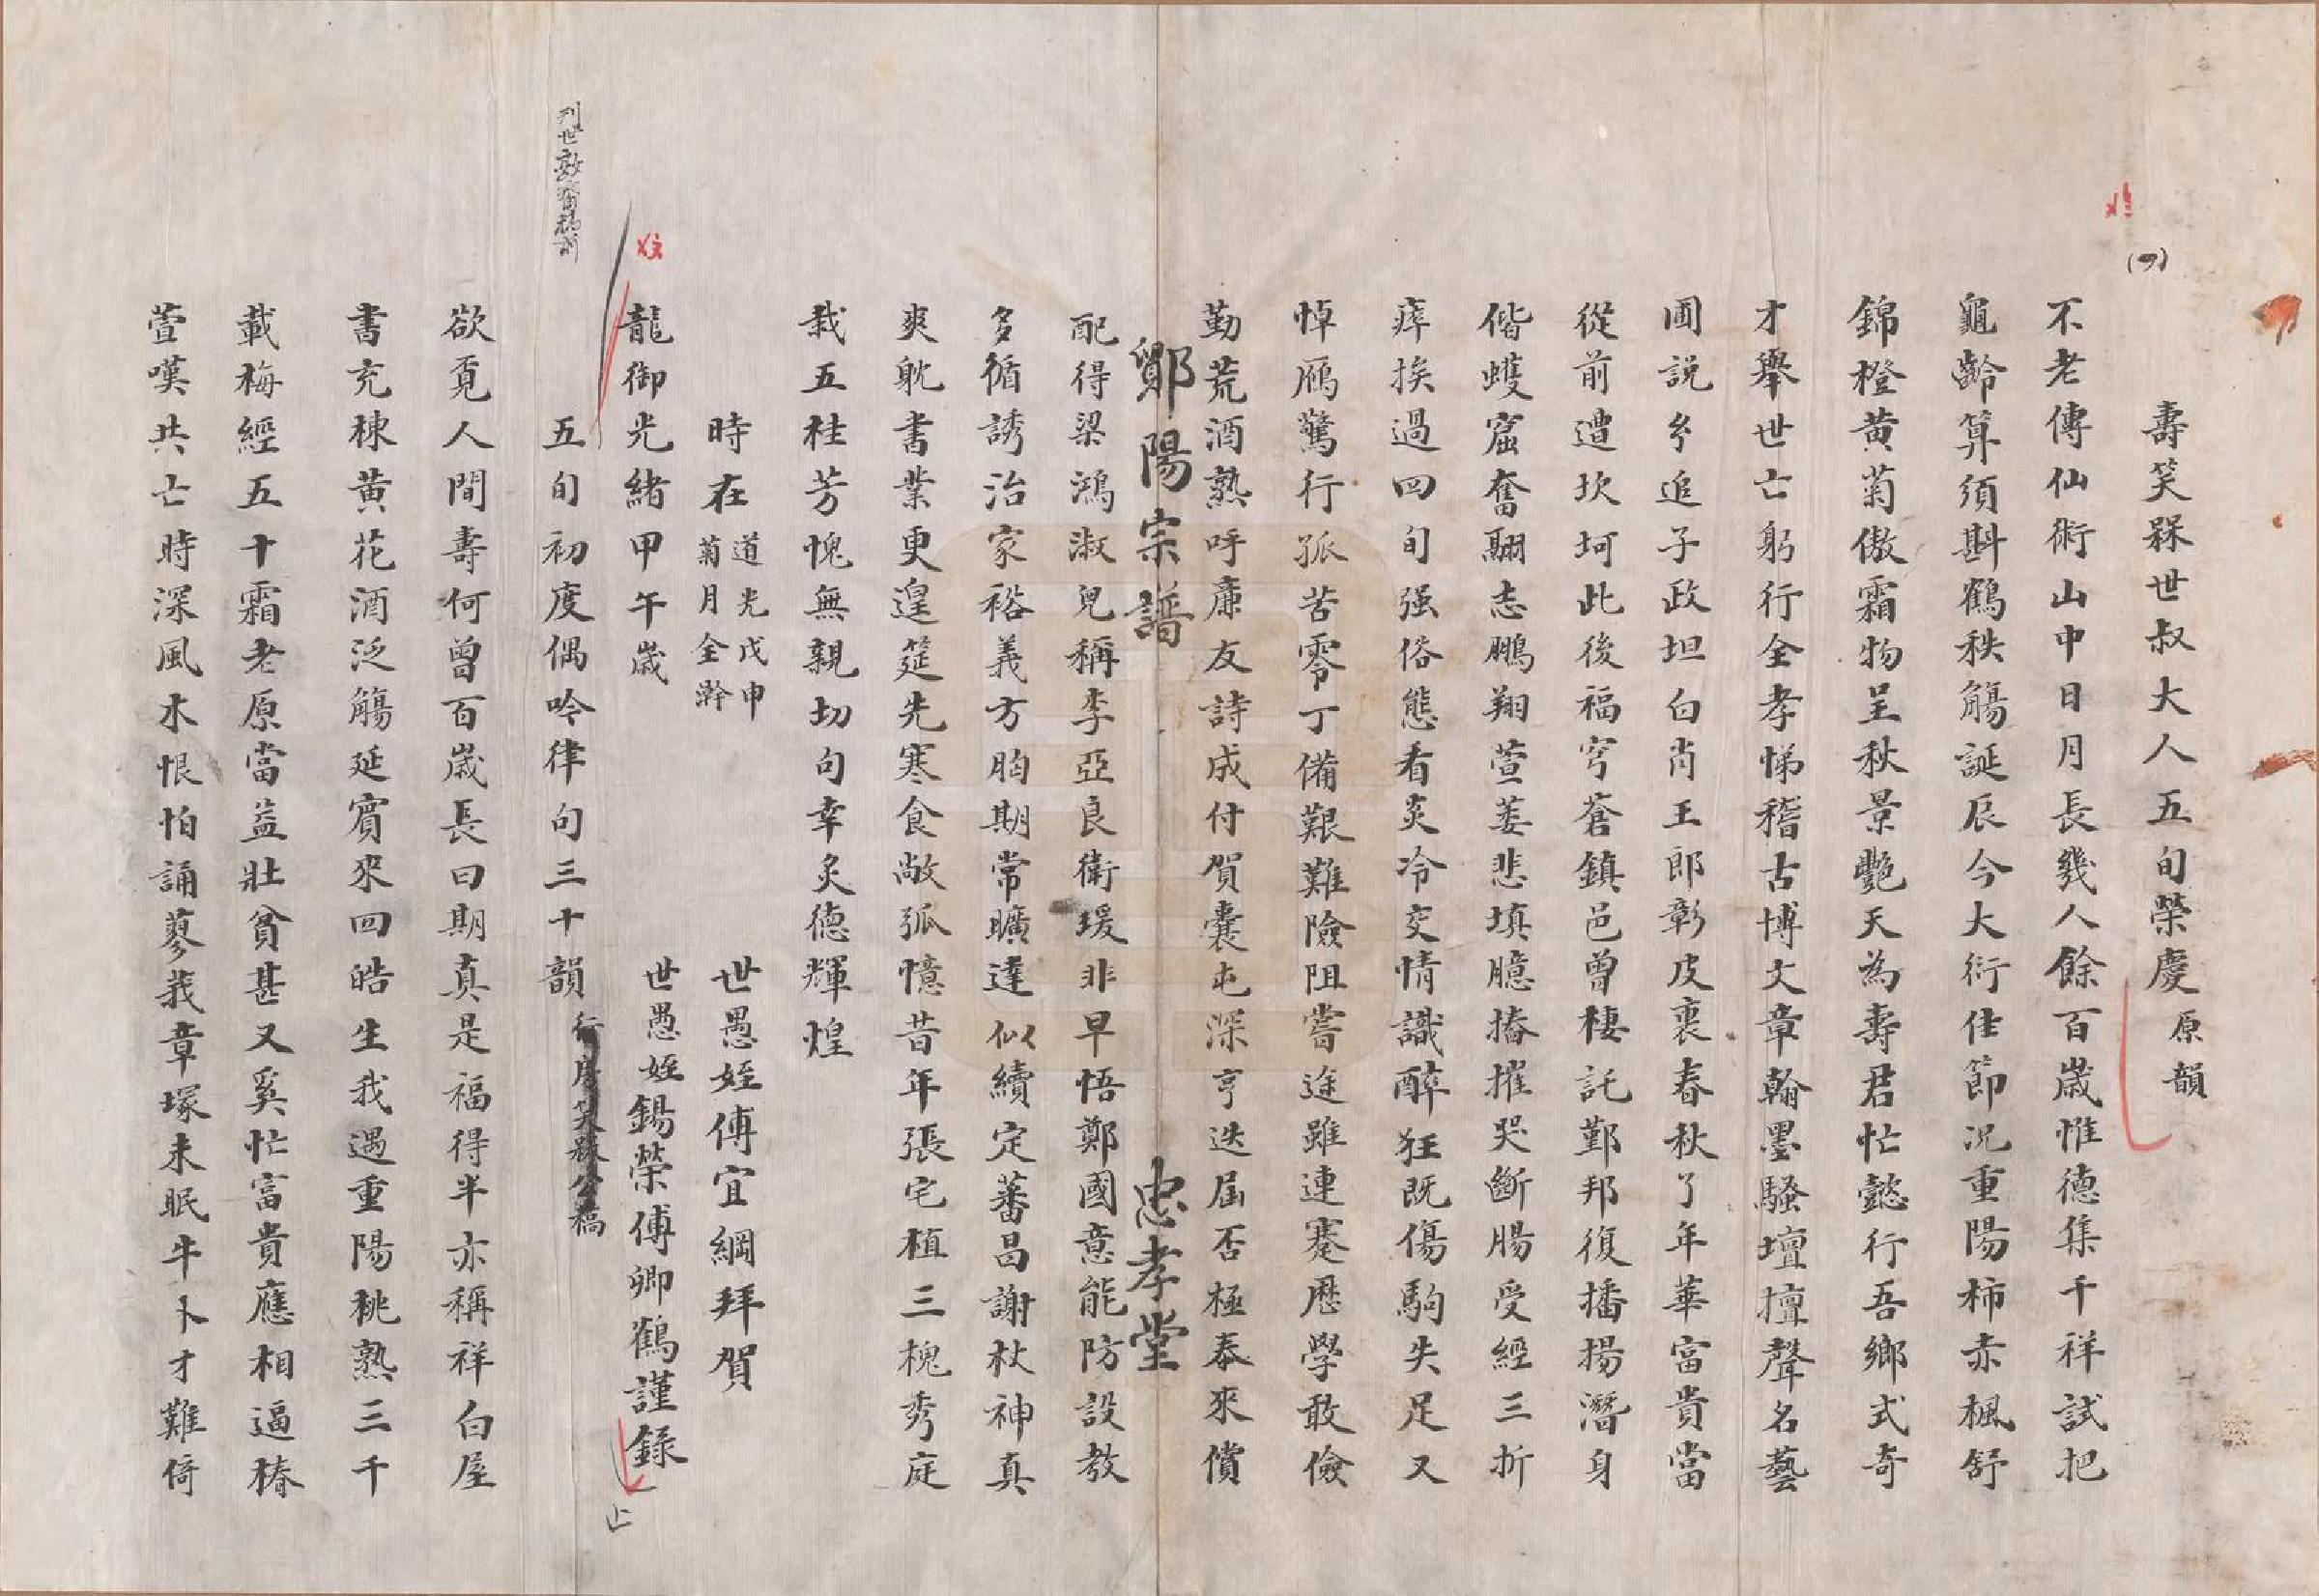 壽笑槑世叔大人五旬榮慶原韻
不老傳仙術山中日月長幾人餘百歲惟德集千祥試把
龜齡算須斟鶴秩觴誕辰今大衍佳節況重陽柿赤楓舒
錦橙黃菊傲霜物呈秋景艷天為壽君忙懿行吾鄉式奇
才舉世亡躬行全孝悌稽古博文章翰墨騷壇擅聲名藝
圃說乡追子政坦白肖王郎彰皮裏春秋了年華富貴當
從前遭坎坷此後福穹蒼鎮邑曾棲託鄞邦復播揚潛身
偕蠖窟奮翮志鵬翔萱萎悲填臆椿摧哭斷腸受經三折
瘁挨過四旬强俗態看炎冷交情識醉狂既傷駒失足又
悼鴈驚行孤苦零丁備艱難險阻嘗途雖連蹇歷學敢儉
勤荒酒熟呼廉友詩成付賀囊屯深亨迭屆否極泰來償
鄭陽宗譜 忠孝堂
配得梁鴻淑兒稱李亞良衛瑗非早悟鄭國意能防設教
多循誘治家裕義方朐期常曠達似續定蕃昌謝杖神真
爽躭書業更遑筵先寒食敞弧憶昔年張宅植三槐秀庭
栽五桂芳愧無親切句幸炙德輝煌
時在道光戊申菊月全澣 世愚姪傅宜綱拜賀
龍御光緒甲午歲 世愚姪錫榮傅卿鶴謹錄
五旬初度偶吟律句三十韻 行房笑槑公稿
欲覔人間壽何曾百歲長曰期真是福得半亦稱祥白屋
書充棟黃花酒泛觴延賓來四皓生我遇重陽桃熟三千
載梅經五十霜老原當益壯貧甚又奚忙富貴應相逼椿
萱嘆共亡時深風木恨怕誦蓼莪章塚未眠牛卜才難倚